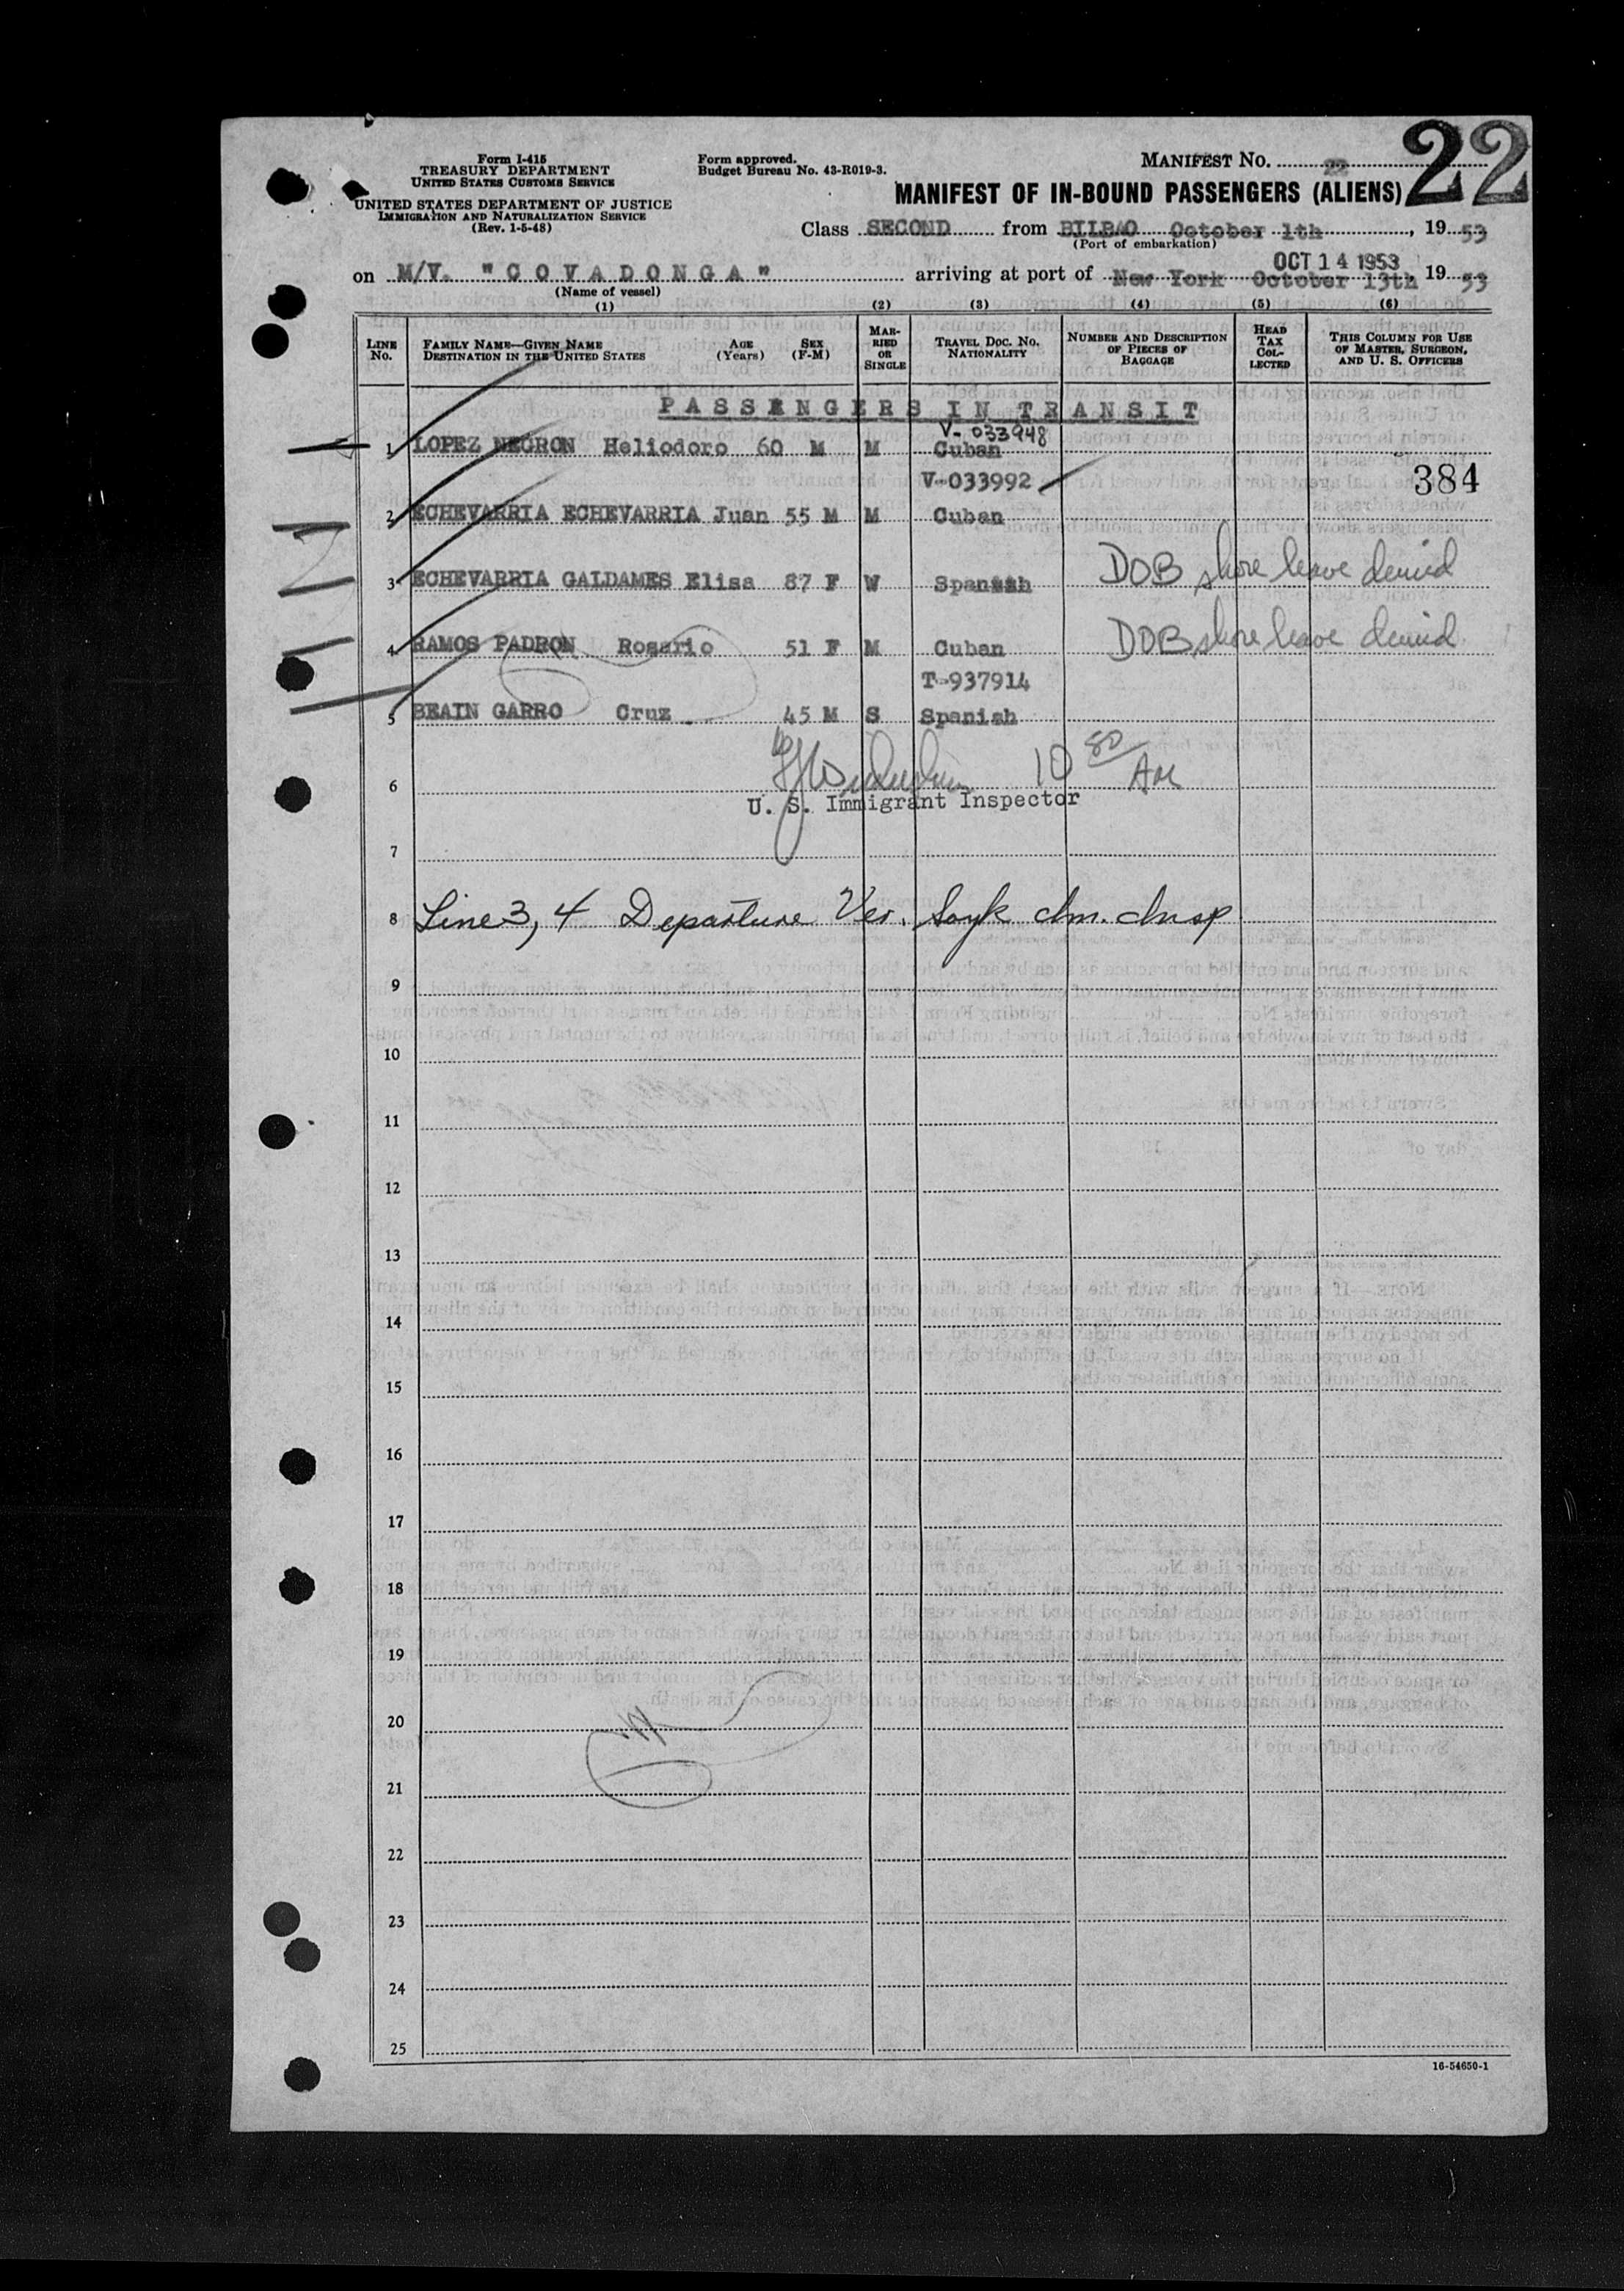 22
Form I-415
TREASURY DEPARTMENT
UNITED STATES CUSTOMS SERVICE
UNITED STATES DEPARTMENT OF JUSTICE
IMMIGRATION AND NATURALIZATION SERVICE
(Rev. 1-5-48)
Form approved.
Budget Bureau No. 43-R019-3.
MANIFEST NO. 22
MANIFEST OF IN-BOUND PASSENGERS (ALIENS)
Class SECOND from BILBAO October 1th, 1953
(Port of embarkation)
OCT 14 1953
on M/V. "COVADONGA" arriving at port of New York October 13th 1953
(Name of vessel)
(1) (2) (3) (4) (5) (6)
LINE No. FAMILY NAME—GIVEN NAME DESTINATION IN THE UNITED STATES AGE (Years) SEX (F-M) MARRIED OR SINGLE TRAVEL DOC. NO. NATIONALITY NUMBER AND DESCRIPTION OF PIECES OF BAGGAGE HEAD TAX COLLECTED THIS COLUMN FOR USE OF MASTER, SURGEON, AND U. S. OFFICERS
PASSENGERS IN TRANSIT
V-033948
1 LOPEZ NEGRON Heliodoro 60 M M Cuban
V-033992
384
2 ECHEVARRIA ECHEVARRIA Juan 55 M M Cuban
3 ECHEVARRIA GALDAMES Elisa 87 F W Spanish DOB shore leave denied
4 RAMOS PADRON Rosario 51 F M Cuban DOB shore leave denied
T-937914
5 BEAIN GARRO Cruz 45 M S Spanish
10 AM
6 U. S. Immigrant Inspector
7
8 Line 3, 4 Departure Ver. Imm. Insp
9
10
11
12
13
14
15
16
17
18
19
20
21
22
23
24
25
16-54650-1